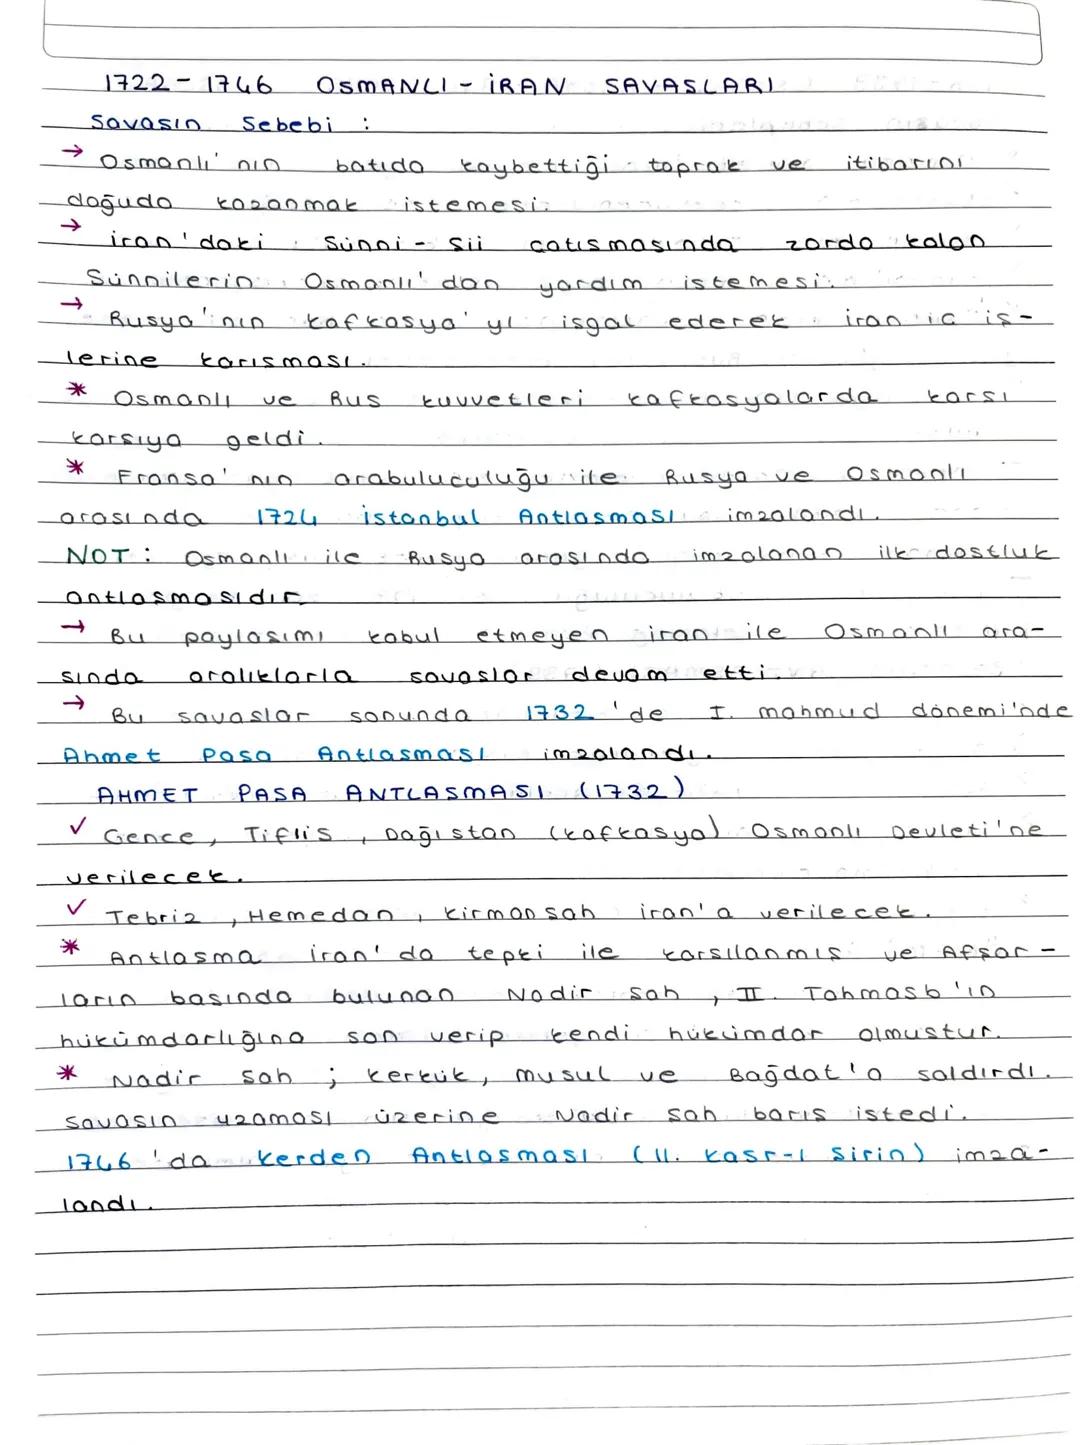 1722 - 1746 OSMANLI - İRAN SAVASLARI
Savasın Sebebi :
→ Osmanlı'nın batıda kaybettiği toprak ve itibarını
doğuda kazanmak istemesi.
→ iran'daki Sünni - Sii catısmasında zorda kalan
Sünnilerin Osmanlı'dan yardım istemesi.
→ Rusya'nın kafkasya'yı isgal ederek iran ic is-
lerine karısması.
* Osmanlı ve Rus kuvvetleri kafkasyalarda karsı
karsıya geldi.
* Fransa'nın arabuluculuğu ile Rusya ve Osmanlı
arasında 1724 istanbul Antlasması imzalandı.
NOT : Osmanlı ile Rusya arasında imzalanan ilk dostluk
antlasmasıdır.
→ Bu paylasımı kabul etmeyen iran ile Osmanlı ara-
sında aralıklarla savaslar devam etti.
→ Bu savaslar sonunda 1732'de I. mahmud dönemi'nde
Ahmet Pasa Antlasması imzalandı.
AHMET PASA ANTLASMASI (1732)
✓ Gence, Tiflis, Dağıstan (kafkasya) Osmanlı Devleti'ne
verilecek.
✓ Tebriz, Hemedan, kirmansah iran'a verilecek.
* Antlasma iran'da tepki ile karsılanmıs ve Afsar -
ların basında bulunan Nadir sah, II. Tahmasb'ın
hükümdarlığına son verip kendi hükümdar olmustur.
* Nadir Sah ; kerkük, musul ve Bağdat'a saldırdı.
Savasın uzaması üzerine Nadir sah barıs istedi.
1746'da kerden Antlasması (II. kasr-ı Sirin) imza-
landı.